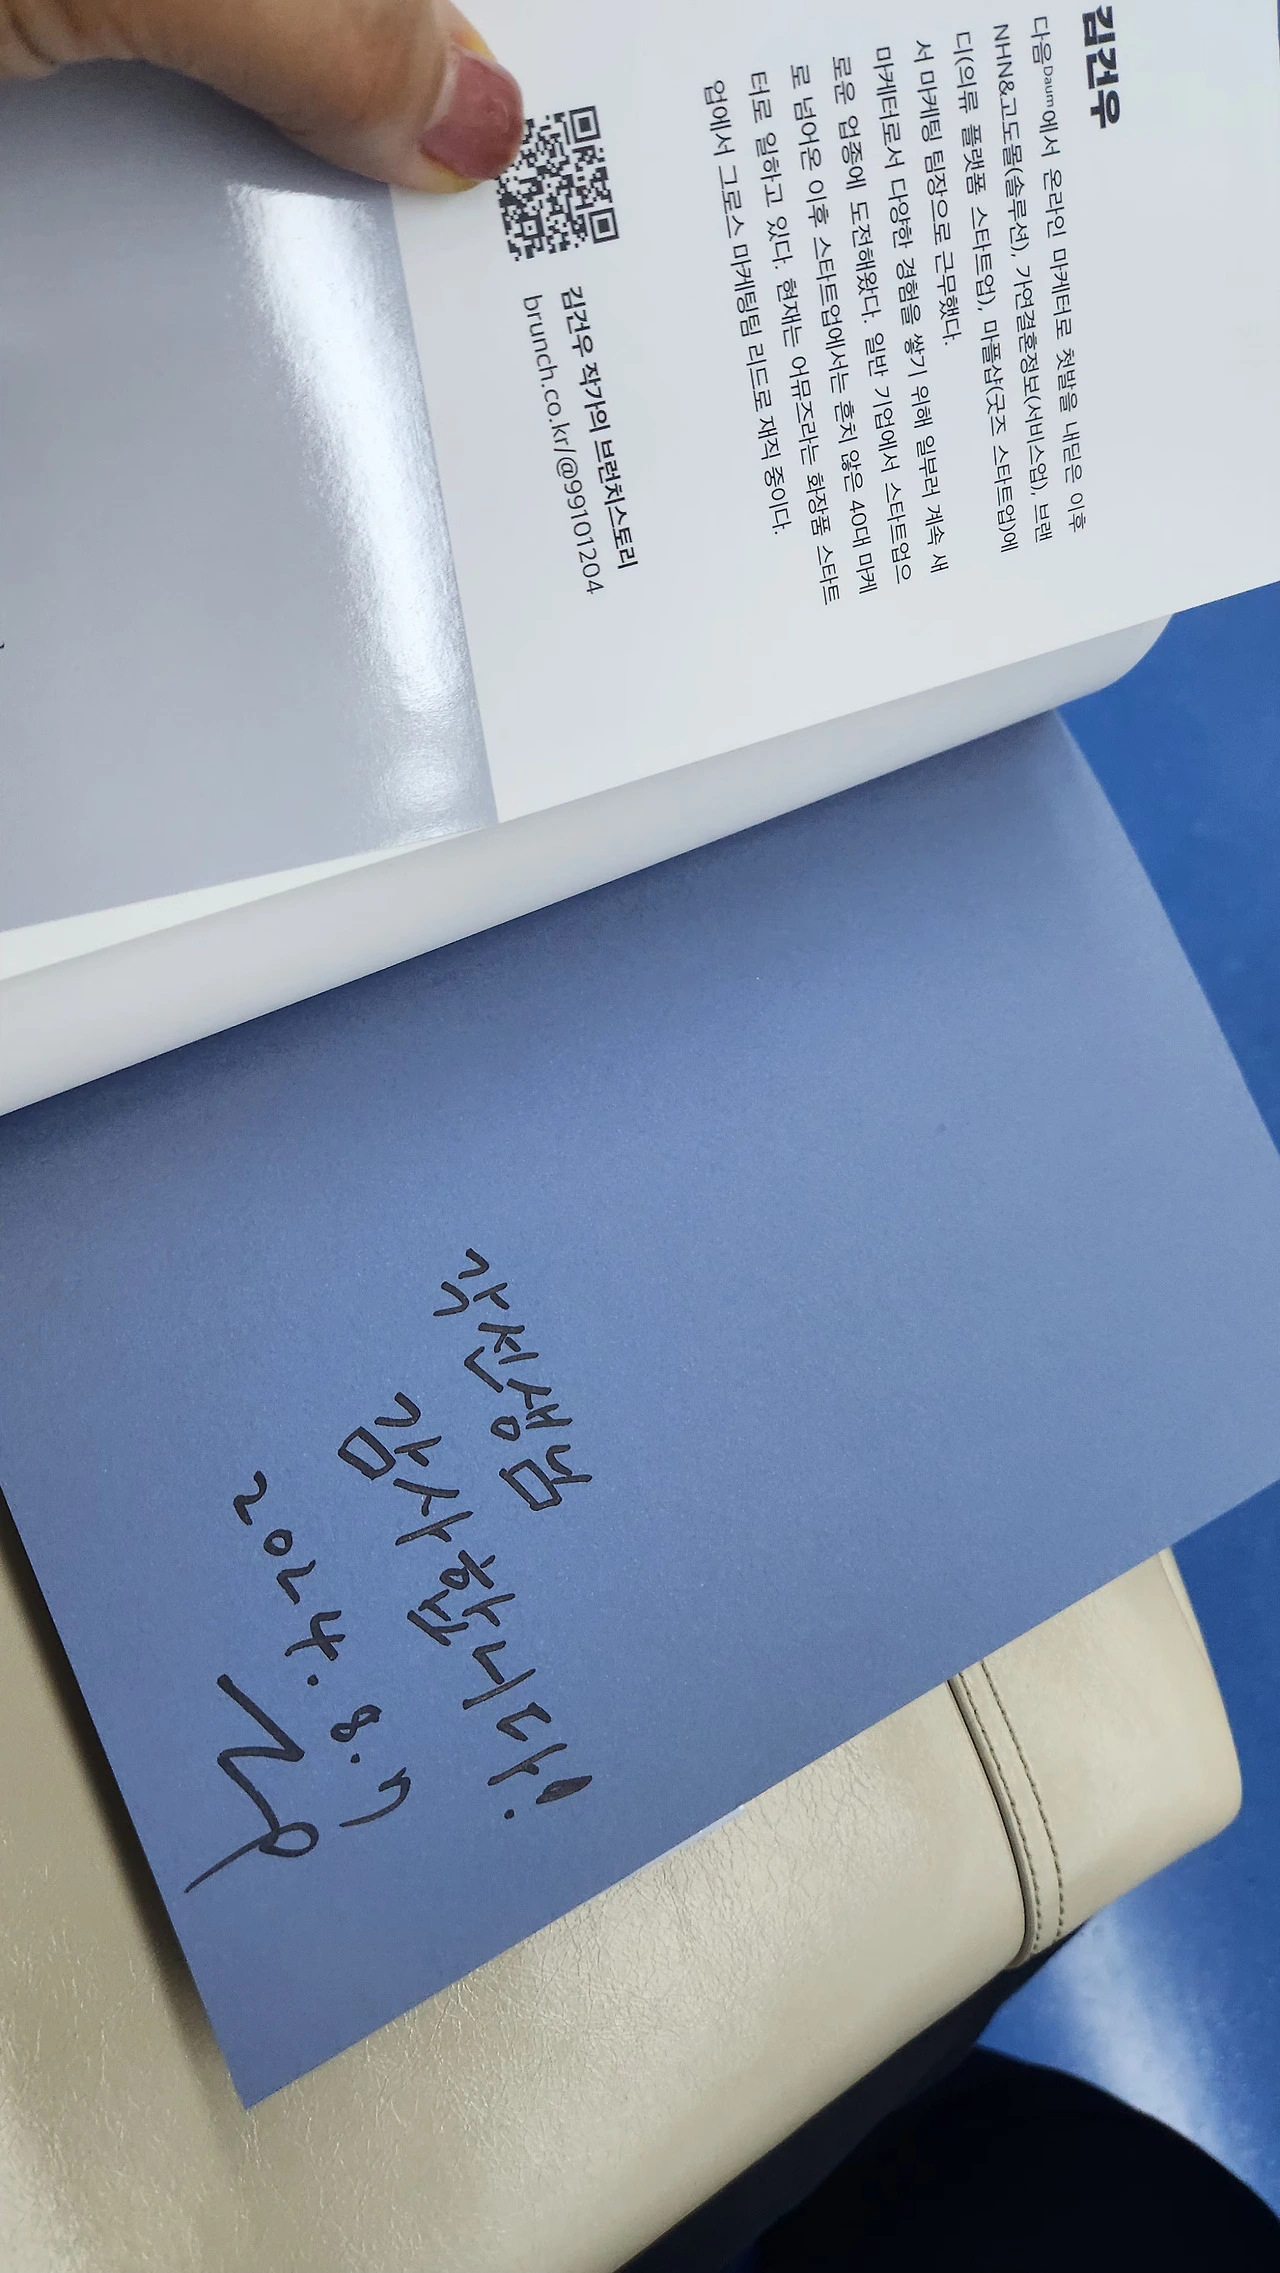 김건우
다음Daum에서 온라인 마케터로 첫발을 내딛은 이후
NHN&고도몰(솔루션), 가연결혼정보(서비스업), 브랜
디(의류 플랫폼 스타트업), 마플샵(굿즈 스타트업)에
서 마케팅 팀장으로 근무했다.
마케터로서 다양한 경험을 쌓기 위해 일부러 계속 새
로운 업종에 도전해왔다. 일반 기업에서 스타트업으
로 넘어온 이후 스타트업에서는 흔치 않은 40대 마케
터로 일하고 있다. 현재는 어뮤즈라는 화장품 스타트
업에서 그로스 마케팅팀 리드로 재직 중이다.
김건우 작가의 브런치스토리
brunch.co.kr/@99101204
각선생님
감사합니다!
2024. 8. 7